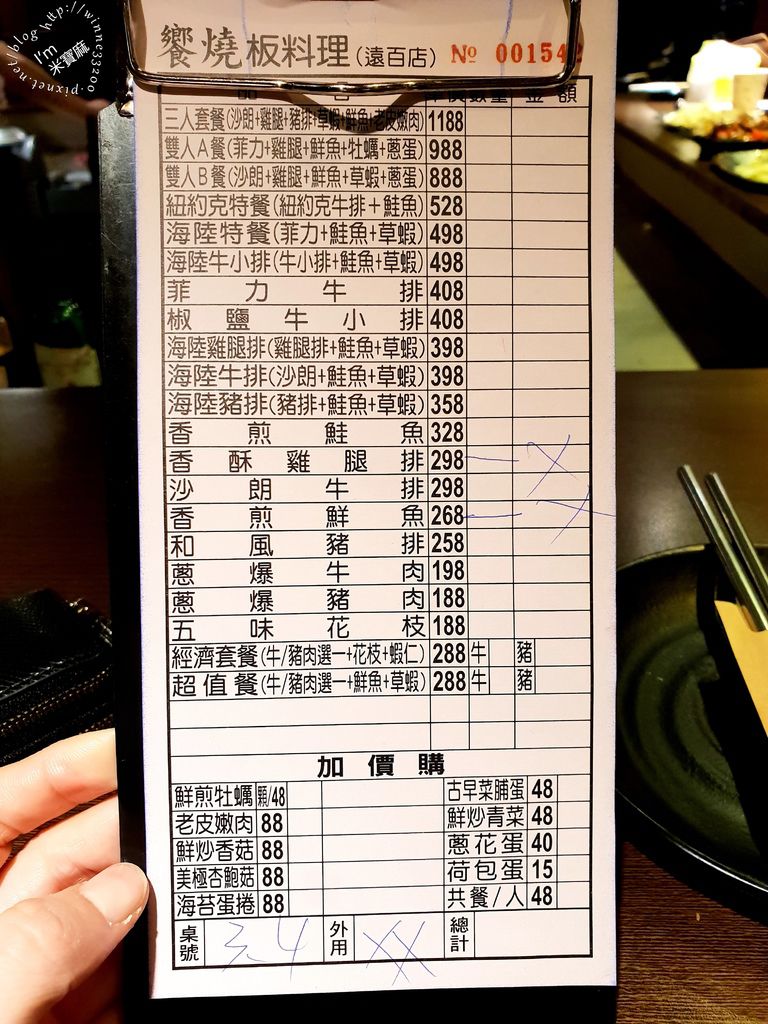 http://winne33200
.pixnet.net/blog
I'm
米寶麻
饗燒板料理(遠百店) № 00154
單價數量金額
三人套餐(沙朗+雞腿+豬排+草蝦+鮮魚+老皮嫩肉) 1188
雙人A餐(菲力+雞腿+鮮魚+牡蠣+蔥蛋) 988
雙人B餐(沙朗+雞腿+鮮魚+草蝦+蔥蛋) 888
紐約克特餐(紐約克牛排+鮭魚) 528
海陸特餐(菲力+鮭魚+草蝦) 498
海陸牛小排(牛小排+鮭魚+草蝦) 498
菲力牛排 408
椒鹽牛小排 408
海陸雞腿排(雞腿排+鮭魚+草蝦) 398
海陸牛排(沙朗+鮭魚+草蝦) 398
海陸豬排(豬排+鮭魚+草蝦) 358
香煎鮭魚 328
香酥雞腿排 298 一
沙朗牛排 298
香煎鮮魚 268 一
和風豬排 258
蔥爆牛肉 198
蔥爆豬肉 188
五味花枝 188
經濟套餐(牛/豬肉選一+花枝+蝦仁) 288 牛 豬
超值餐(牛/豬肉選一+鮮魚+草蝦) 288 牛 豬
加價購
鮮煎牡蠣 顆/48 古早菜脯蛋 48
老皮嫩肉 88 鮮炒青菜 48
鮮炒香菇 88 蔥花蛋 40
美極杏鮑菇 88 荷包蛋 15
海苔蛋捲 88 共餐/人 48
桌號 3-4 外用 XX 總計